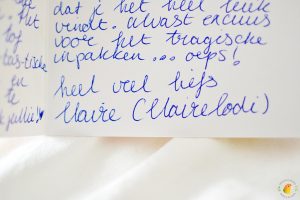 het
lof
tastische
en
te
jullie!
dat je het heel leuk
vindt. alvast excuus
voor het tragische
inpakken... oeps!
heel veel liefs
Claire (Clairelodi)